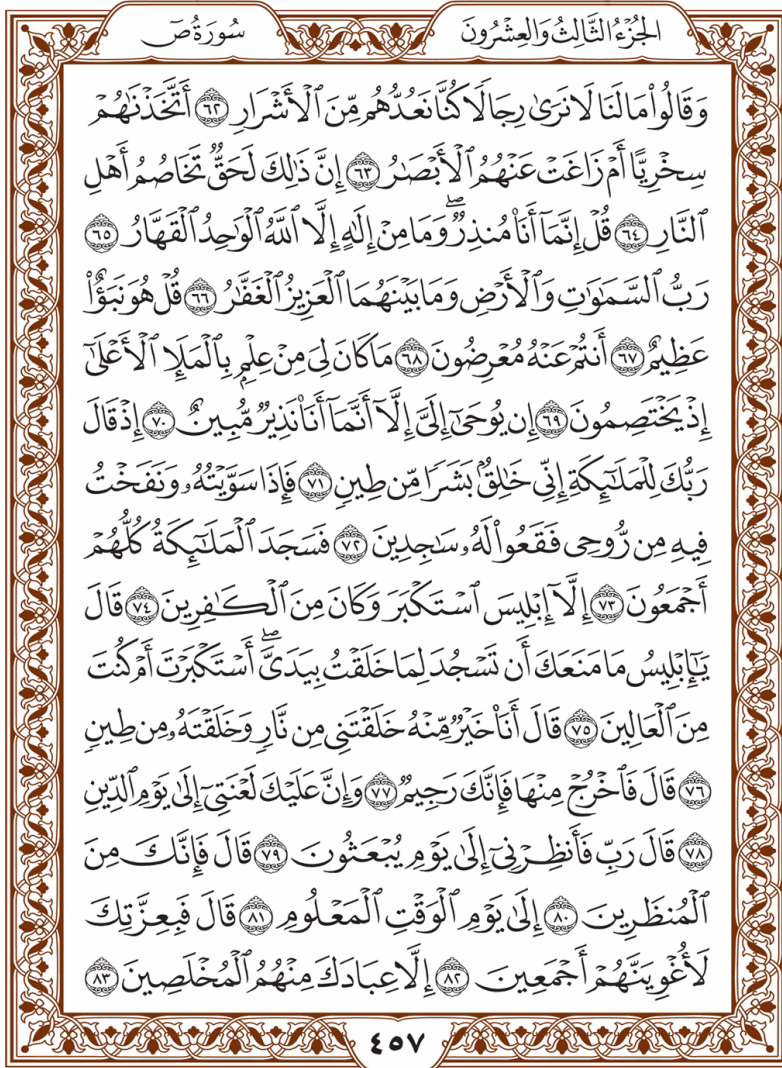 الجُزْءُ الثَّالِثُ وَالعِشْرُونَ
سُورَةُ صٓ
وَقَالُواْ مَا لَنَا لَا نَرَىٰ رِجَالٗا كُنَّا نَعُدُّهُم مِّنَ ٱلۡأَشۡرَارِ ٦٢ أَتَّخَذۡنَٰهُمۡ
سِخۡرِيًّا أَمۡ زَاغَتۡ عَنۡهُمُ ٱلۡأَبۡصَٰرُ ٦٣ إِنَّ ذَٰلِكَ لَحَقّٞ تَخَاصُمُ أَهۡلِ
ٱلنَّارِ ٦٤ قُلۡ إِنَّمَآ أَنَا۠ مُنذِرٞۖ وَمَا مِنۡ إِلَٰهٍ إِلَّا ٱللَّهُ ٱلۡوَٰحِدُ ٱلۡقَهَّارُ ٦٥
رَبُّ ٱلسَّمَٰوَٰتِ وَٱلۡأَرۡضِ وَمَا بَيۡنَهُمَا ٱلۡعَزِيزُ ٱلۡغَفَّٰرُ ٦٦ قُلۡ هُوَ نَبَؤٌاْ
عَظِيمٌ ٦٧ أَنتُمۡ عَنۡهُ مُعۡرِضُونَ ٦٨ مَا كَانَ لِيَ مِنۡ عِلۡمِۭ بِٱلۡمَلَإِ ٱلۡأَعۡلَىٰٓ
إِذۡ يَخۡتَصِمُونَ ٦٩ إِن يُوحَىٰٓ إِلَيَّ إِلَّآ أَنَّمَآ أَنَا۠ نَذِيرٞ مُّبِينٌ ٧٠ إِذۡ قَالَ
رَبُّكَ لِلۡمَلَٰٓئِكَةِ إِنِّي خَٰلِقُۢ بَشَرٗا مِّن طِينٖ ٧١ فَإِذَا سَوَّيۡتُهُۥ وَنَفَخۡتُ
فِيهِ مِن رُّوحِي فَقَعُواْ لَهُۥ سَٰجِدِينَ ٧٢ فَسَجَدَ ٱلۡمَلَٰٓئِكَةُ كُلُّهُمۡ
أَجۡمَعُونَ ٧٣ إِلَّآ إِبۡلِيسَ ٱسۡتَكۡبَرَ وَكَانَ مِنَ ٱلۡكَٰفِرِينَ ٧٤ قَالَ
يَٰٓإِبۡلِيسُ مَا مَنَعَكَ أَن تَسۡجُدَ لِمَا خَلَقۡتُ بِيَدَيَّۖ أَسۡتَكۡبَرۡتَ أَمۡ كُنتَ
مِنَ ٱلۡعَالِينَ ٧٥ قَالَ أَنَا۠ خَيۡرٞ مِّنۡهُ خَلَقۡتَنِي مِن نَّارٖ وَخَلَقۡتَهُۥ مِن طِينٖ
٧٦ قَالَ فَٱخۡرُجۡ مِنۡهَا فَإِنَّكَ رَجِيمٞ ٧٧ وَإِنَّ عَلَيۡكَ لَعۡنَتِيٓ إِلَىٰ يَوۡمِ ٱلدِّينِ
٧٨ قَالَ رَبِّ فَأَنظِرۡنِيٓ إِلَىٰ يَوۡمِ يُبۡعَثُونَ ٧٩ قَالَ فَإِنَّكَ مِنَ
ٱلۡمُنظَرِينَ ٨٠ إِلَىٰ يَوۡمِ ٱلۡوَقۡتِ ٱلۡمَعۡلُومِ ٨١ قَالَ فَبِعِزَّتِكَ
لَأُغۡوِيَنَّهُمۡ أَجۡمَعِينَ ٨٢ إِلَّا عِبَادَكَ مِنۡهُمُ ٱلۡمُخۡلَصِينَ ٨٣
٤٥٧